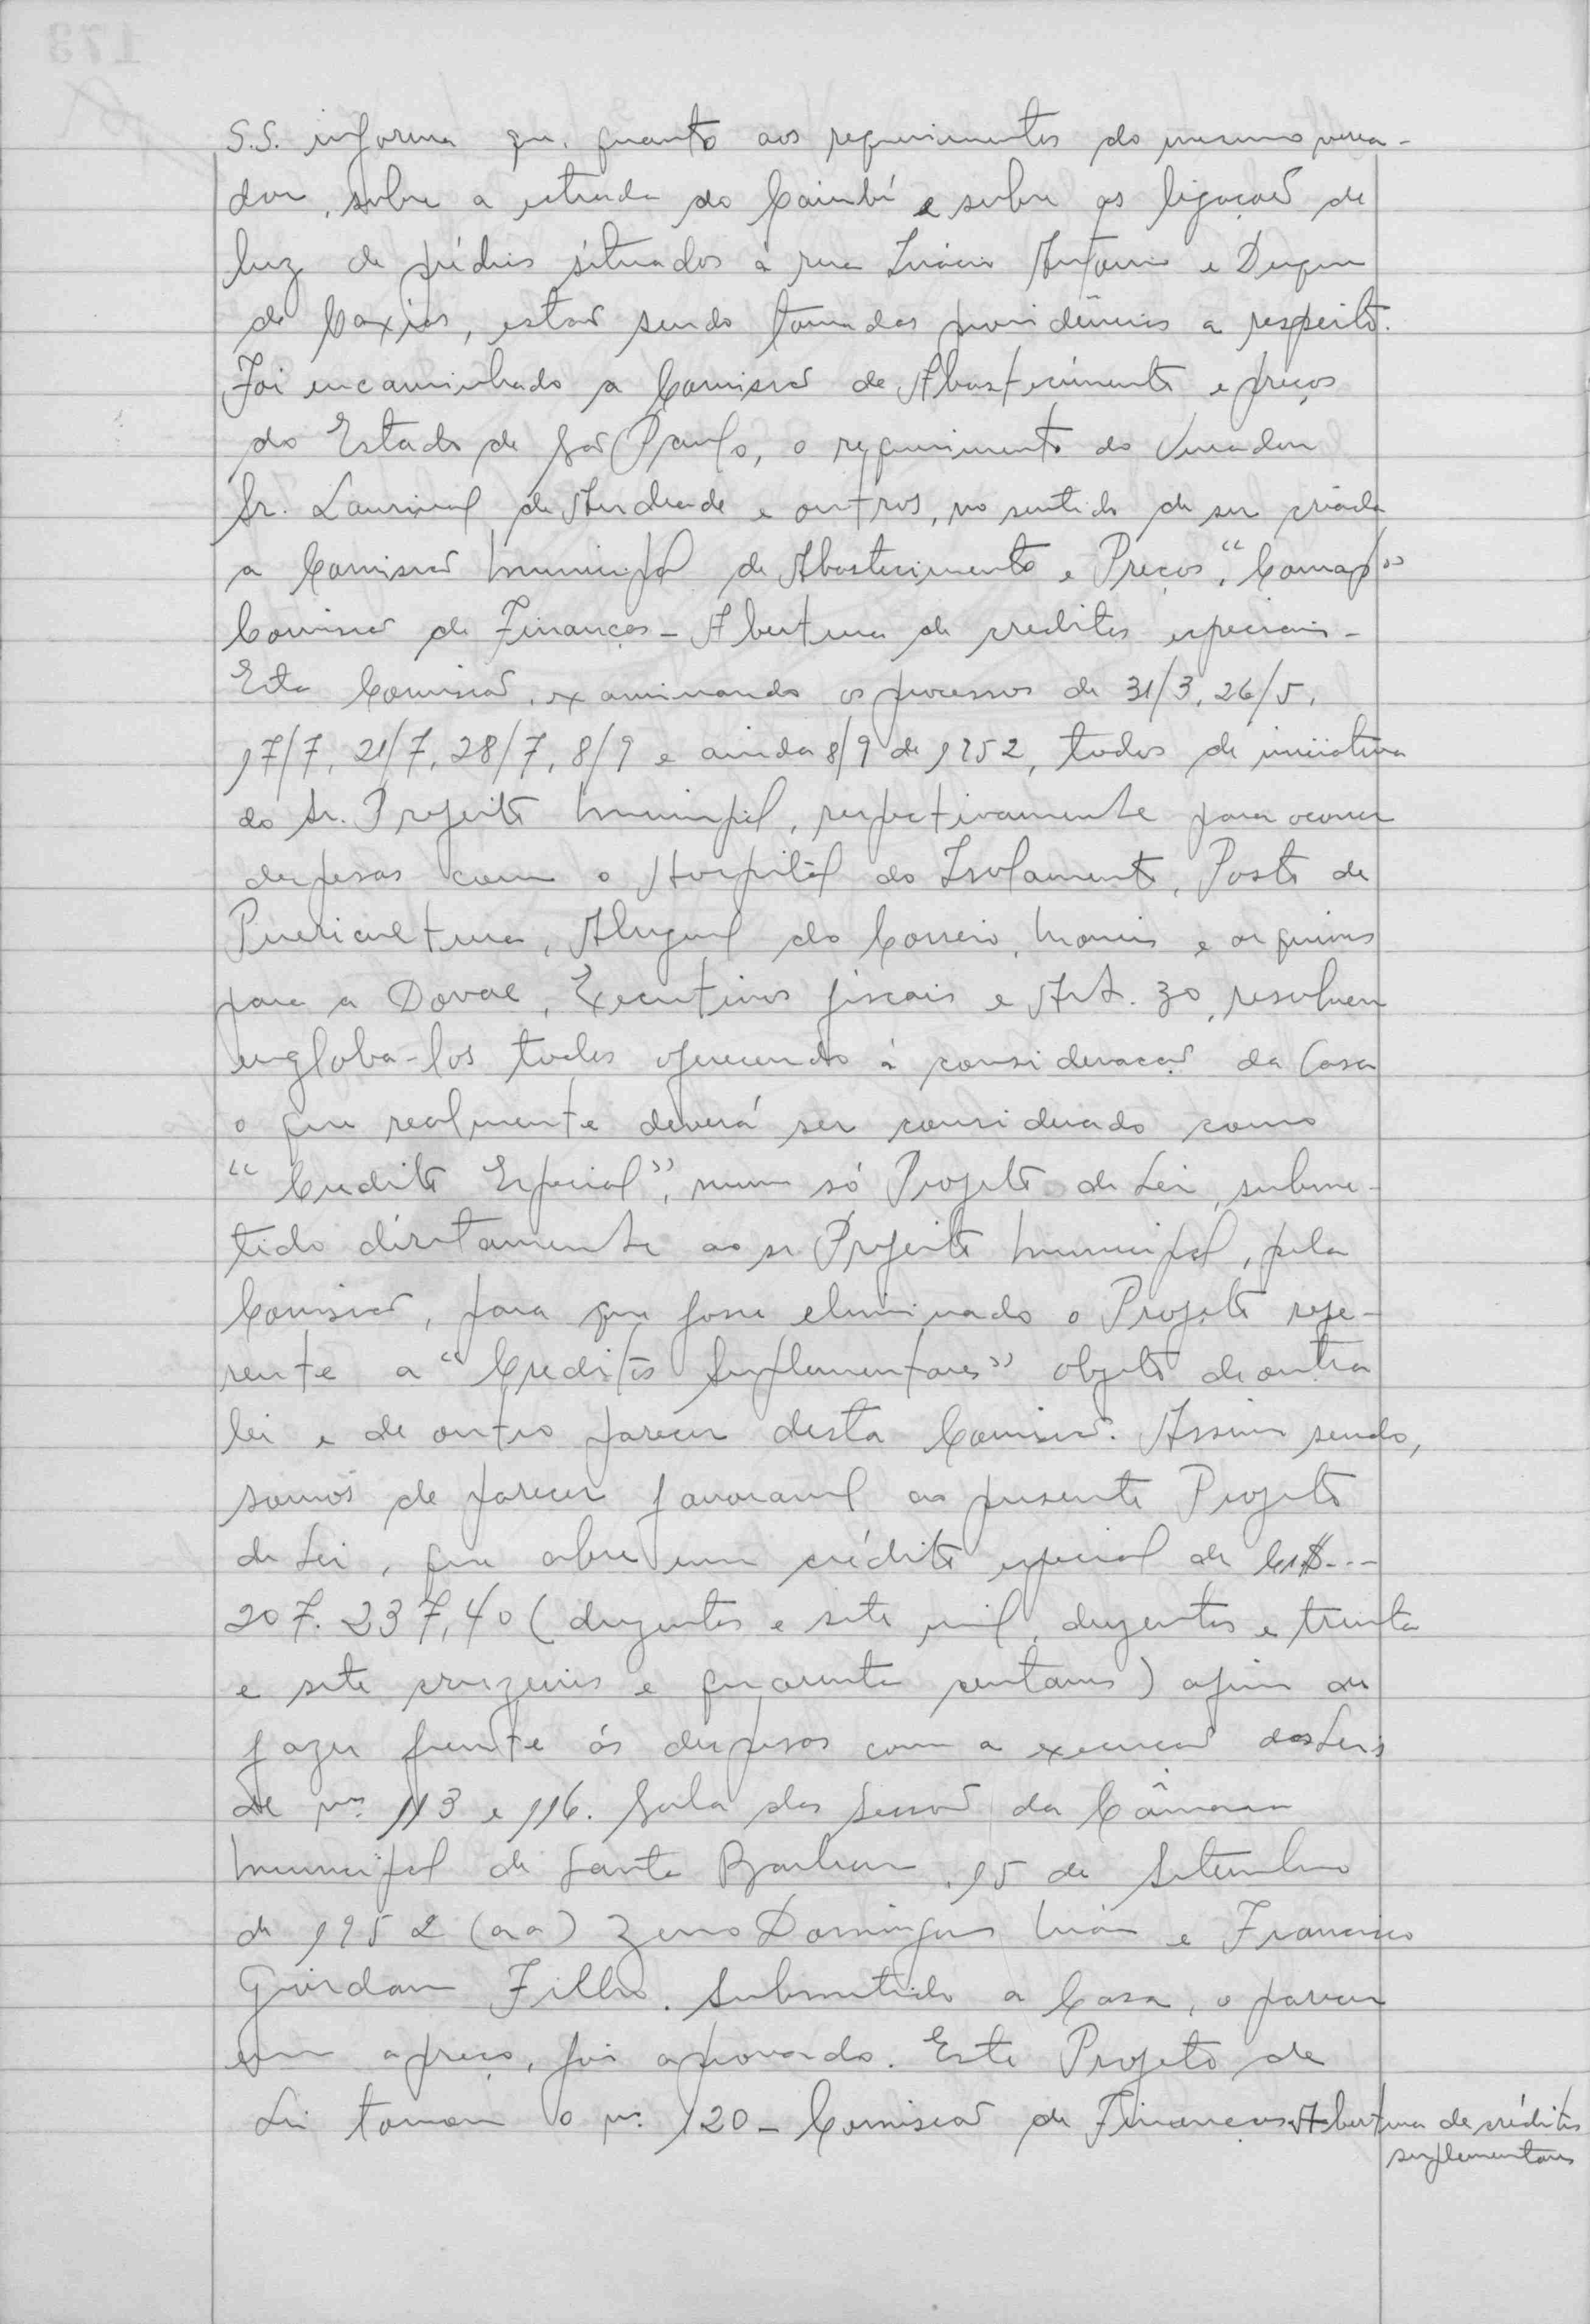 S.S. informa que, quanto aos requerimentos do mesmo verea-
dor, sobre a estrada do Caiubí e sobre as ligações de
luz de prédios situados á rua Inácio Antonio e Duque
de Caxias, estão sendo tomadas providências a respeito.
Foi encaminhado a Comissão de Abastecimento e preços
do Estado de São Paulo, o requerimento do Vereador
Sr. Laurival de Andrade e outros, no sentido de ser criada
a Comissão Municipal de Abastecimento e Preços, "Comap"
Comissão de Finanças - Abertura de creditos especiais -
Esta Comissão, examinando os processos de 31/3, 26/5,
17/7, 21/7, 28/7, 8/9 e ainda 8/9 de 1952, todos de iniciativa
do Sr. Prefeito Municipal, respectivamente para ocorrer
despesas com o Hospital do Isolamento, Posto de
Puericultura, Aluguel do Correio, e arquivos
para a Executivos fiscais e Art. 30, resolveu
engloba-los todos oferecendo á consideração da Casa
o que realmente deverá ser considerado como
"Credito Especial", num só Projeto de Lei, subme-
tido diretamente ao sr Prefeito Municipal, pela
Comissão, para que fosse eliminado o Projeto refe-
rente a "Creditos Suplementares" objeto de outra
lei e de outro parecer desta Comissão. Assim sendo,
somos de parecer favoravel ao presente Projeto
de Lei, que abre um crédito especial de Cr$---
207.237,40 (duzentos e sete mil, duzentos e trinta
e sete cruzeiros e quarenta centavos) afim de
fazer frente ás despesas com a execução das Leis
de nºs 113 e 116. Sala das Sessões da Câmara
Municipal de Santa Barbara, 15 de Setembro
de 1952 (aa) Zeno Domingues Maia e Francisco
Guirdam Filho. Submetido a Casa, o parecer
em apreço, foi aprovado. Este Projeto de
Lei tomou o nº 120 - Comissão de Finanças Abertura de créditos
suplementares